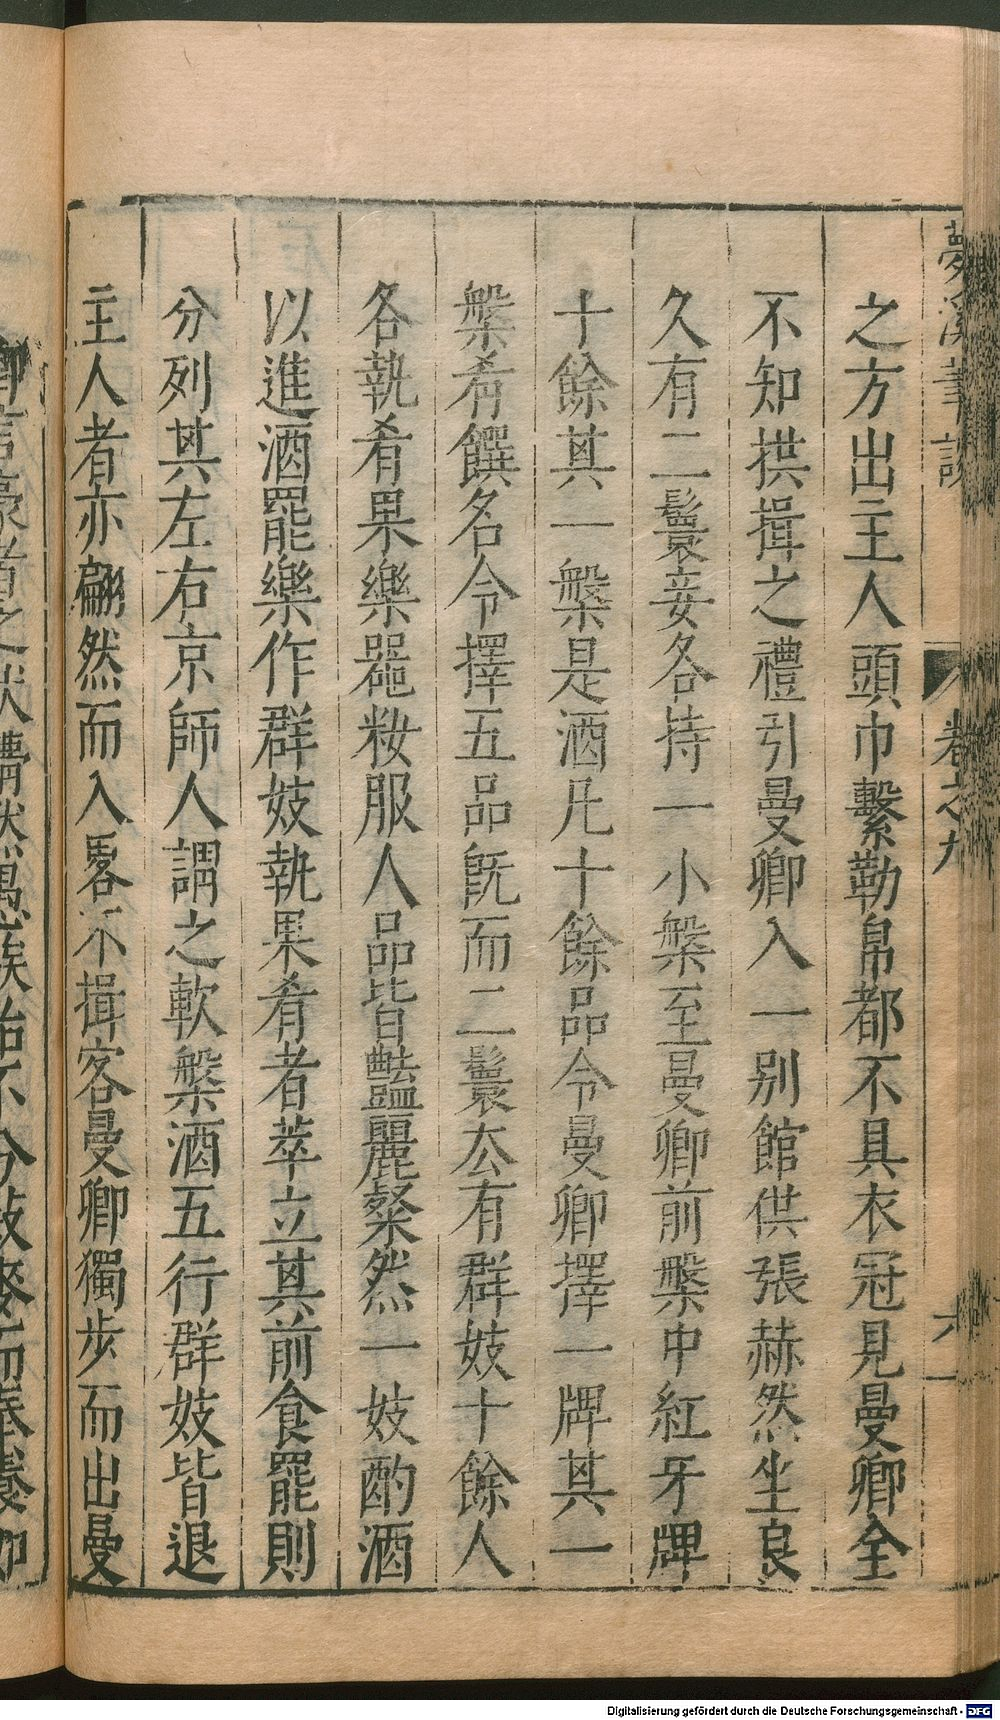 夢溪筆談
卷之九
六
之方出主人頭巾繫勒帛都不具衣冠見曼卿全
不知拱揖之禮引曼卿入一别館供張赫然坐良
久有二鬟妾各持一小槃至曼卿前槃中紅牙牌
十餘其一槃是酒凡十餘品令曼卿擇一牌其一
槃肴饌名令擇五品旣而二鬟厺有群妓十餘人
各執肴果樂器粧服人品皆豔麗粲然一妓酌酒
以進酒罷樂作群妓執果肴者萃立其前食罷則
分列其左右京師人謂之軟槃酒五行群妓皆退
主人者亦翩然而入畧不揖客曼卿獨步而出曼
Digitalisierung gefördert durch die Deutsche Forschungsgemeinschaft - DFG